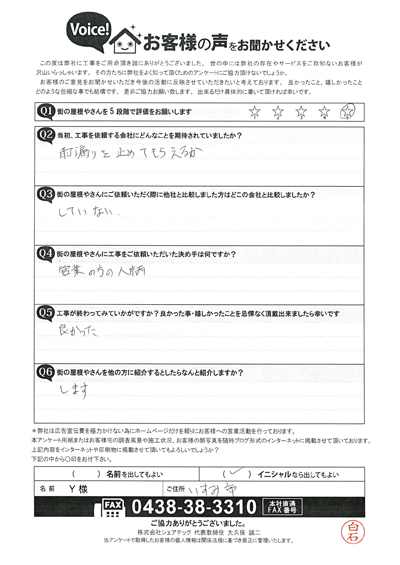 Voice!
お客様の声をお聞かせください
この度は弊社に工事をご用命頂き誠にありがとうございました。世の中には弊社の存在やサービスをご存知ないお客様が
沢山いらっしゃいます。その方たちに弊社をよく知って頂くためのアンケートにご協力頂けないでしょうか。
お客様のご意見をお聞かせいただき今後の活動に反映させていただきたいと考えております。良かったこと、嬉しかったこと
どのような些細な事でも結構です。是非ご協力お願い致します。出来るだけ具体的に書いて頂ければ幸いです。
Q1 街の屋根やさんを5段階で評価をお願いします ☆ ☆ ☆ ☆ ☆
Q2 当初、工事を依頼する会社にどんなことを期待されていましたか？
雨漏りを止めてもらえるか
Q3 街の屋根やさんにご依頼いただく際に他社と比較しました方はどこの会社と比較しましたか？
していない
Q4 街の屋根やさんに工事をご依頼いただいた決め手は何ですか？
営業の方の人柄
Q5 工事が終わってみていかがですか？良かった事・嬉しかったことを忌憚なく頂戴出来ましたら幸いです
良かった
Q6 街の屋根やさんを他の方に紹介するとしたらなんと紹介しますか？
します
＊弊社は広告宣伝費を極力かけない為にホームページだけを頼りにお客様への営業活動を行っております。
本アンケート用紙またはお客様宅の調査風景や施工状況、お客様の顔写真を随時ブログ形式のインターネットに掲載させて頂いております。
上記内容をインターネットや印刷物に掲載させて頂いてもよろしいでしょうか？
下記の中から〇印をお付下さい。
（ ）名前を出してもよい （✓）イニシャルなら出してもよい
名前 Y様 ご住所 いすみ市
FAX 0438-38-3310 本社直通 FAX番号
ご協力ありがとうございました。
株式会社シェアテック 代表取締役 大久保 誠二
当アンケートで取得したお客様の個人情報は関係法規に基づき厳正に管理いたします。
白石